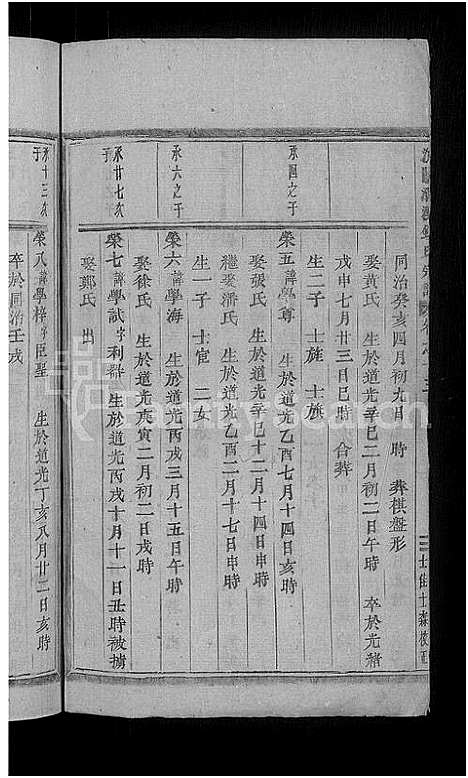 同治癸亥四月初九日 時 葬棋盤形
娶黃氏 生於道光辛巳二月初二日午時 卒於光緒
戊申七月廿三日巳時 合葬
生二子 士旌 士旅
承四之子
榮五 諱學尊 生於道光乙酉七月十四日亥時
娶張氏 生於道光辛巳十二月十四日申時
繼娶潘氏 生於道光乙酉二月十七日申時
生一子 士宦 二女
承六之子
榮六 諱學海 生於道光丙戌三月十五日午時
娶徐氏 生於道光庚寅二月初二日戌時
承廿七次子
榮七 諱學猷 字利群 生於道光丙戌十月十一日丑時被擄
娶鄭氏 出
承十三次子
榮八 諱學梓 字臣聖 生於道光丁亥八月廿二日亥時
卒於同治壬戌
FamilySearch